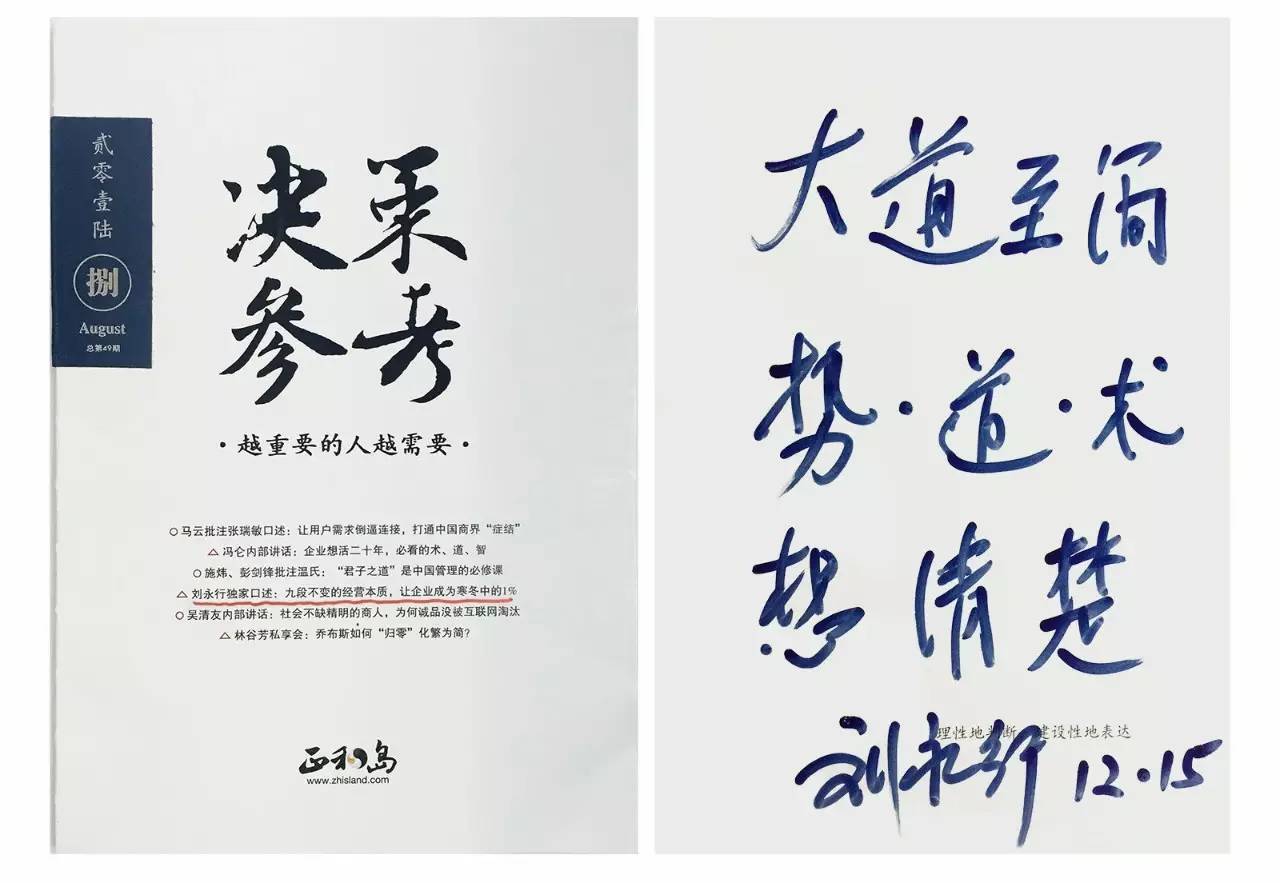 贰零壹陆
捌
August
总第49期
决策
参考
·越重要的人越需要·
○马云批注张瑞敏口述：让用户需求倒逼连接，打通中国商界“症结”
△冯仑内部讲话：企业想活二十年，必看的术、道、智
○施炜、彭剑锋批注温氏：“君子之道”是中国管理的必修课
△刘永行独家口述：九段不变的经营本质，让企业成为寒冬中的1%
○吴清友内部讲话：社会不缺精明的商人，为何诚品没被互联网淘汰
△林谷芳私享会：乔布斯如何“归零”化繁为简？
正和岛
www.zhisland.com
大道至简
势·道·术
想清楚
理性地判断 建设性地表达
刘永行 12·15